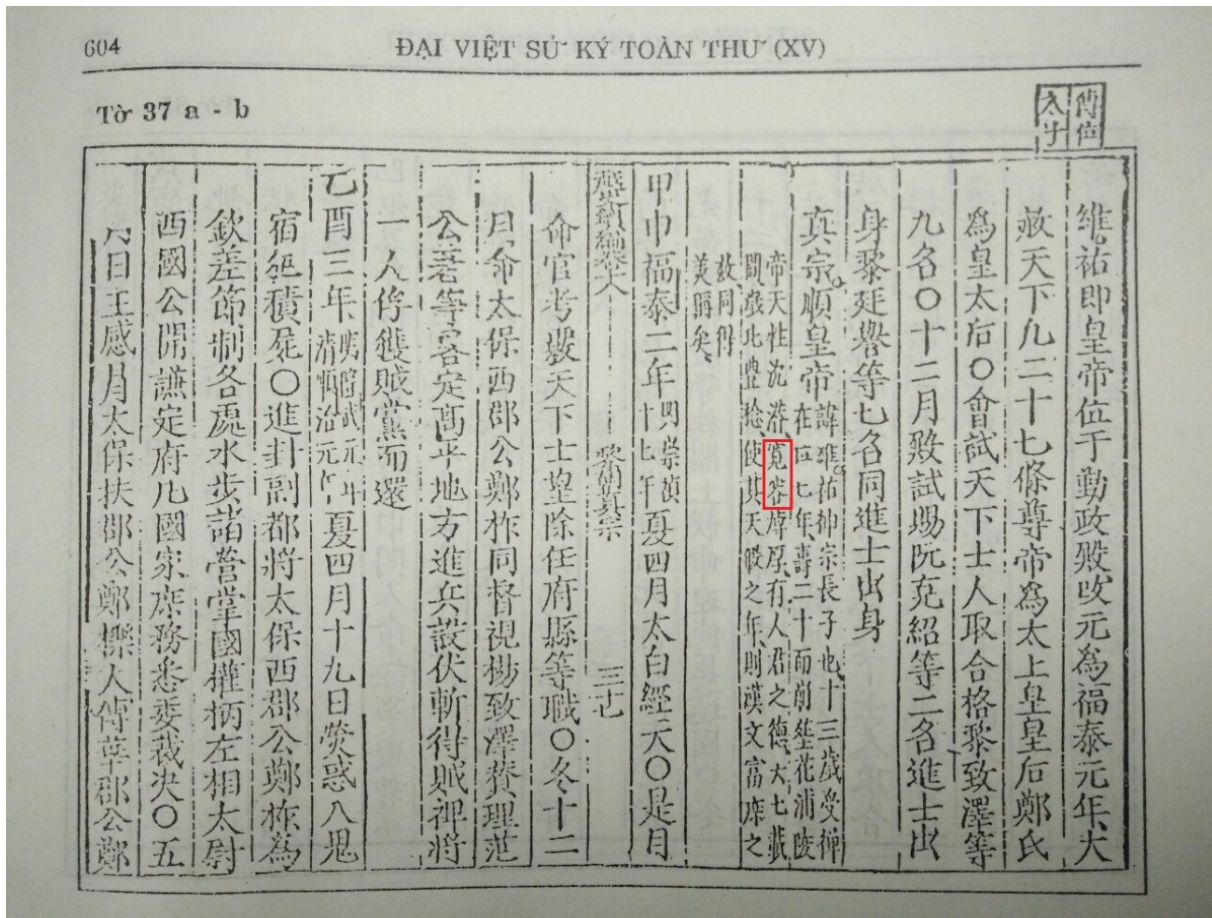 604
ĐẠI VIỆT SỬ KÝ TOÀN THƯ (XV)
Tờ 37 a - b
傳位
太子
維祐即皇帝位于勤政殿改元為福泰元年大
赦天下凡二十七條尊帝為太上皇皇后鄭氏
為皇太后〇會試天下士人取合格黎致澤等
九名〇十二月殿試賜阮克紹等二名進士出
身黎廷譽等七名同進士出身
真宗順皇帝
諱維祐神宗長子也十三歲受禪
在位七年壽二十而崩葬花浦陵
帝天性沈潜寬裕惇厚有人君之德大七載
間歲比豊稔使其天假之年則漢文富庶之
故同得
美稱矣
甲申福泰二年
明崇禎
十七年
夏四月太白經天〇是月
卷十八
黎朝真宗
三十七
命官考覈天下士望除任府縣等職〇冬十二
月命太保西郡公鄭柞同督視楊致澤賛理范
公著等畧定高平地方進兵設伏斬得賊裨將
一人俘獲賊黨而還
乙酉三年
清順治元年
夏四月十九日熒惑入鬼
宿犯積屍〇進封副都將太保西郡公鄭柞為
欽差節制各處水步諸營掌國權柄左相太尉
西國公開謙定府凡國家庶務悉委裁决〇五
月日王感冒太保扶郡公鄭櫟太傅華郡公鄭